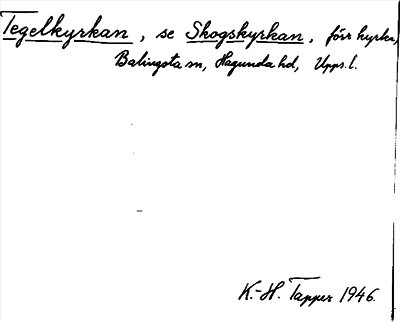 Tegelkyrkan, se Skogskyrkan, förr kyrka,
Balingsta sn, Hagunda hd, Upps. l.
K.-H. Tapper 1946.